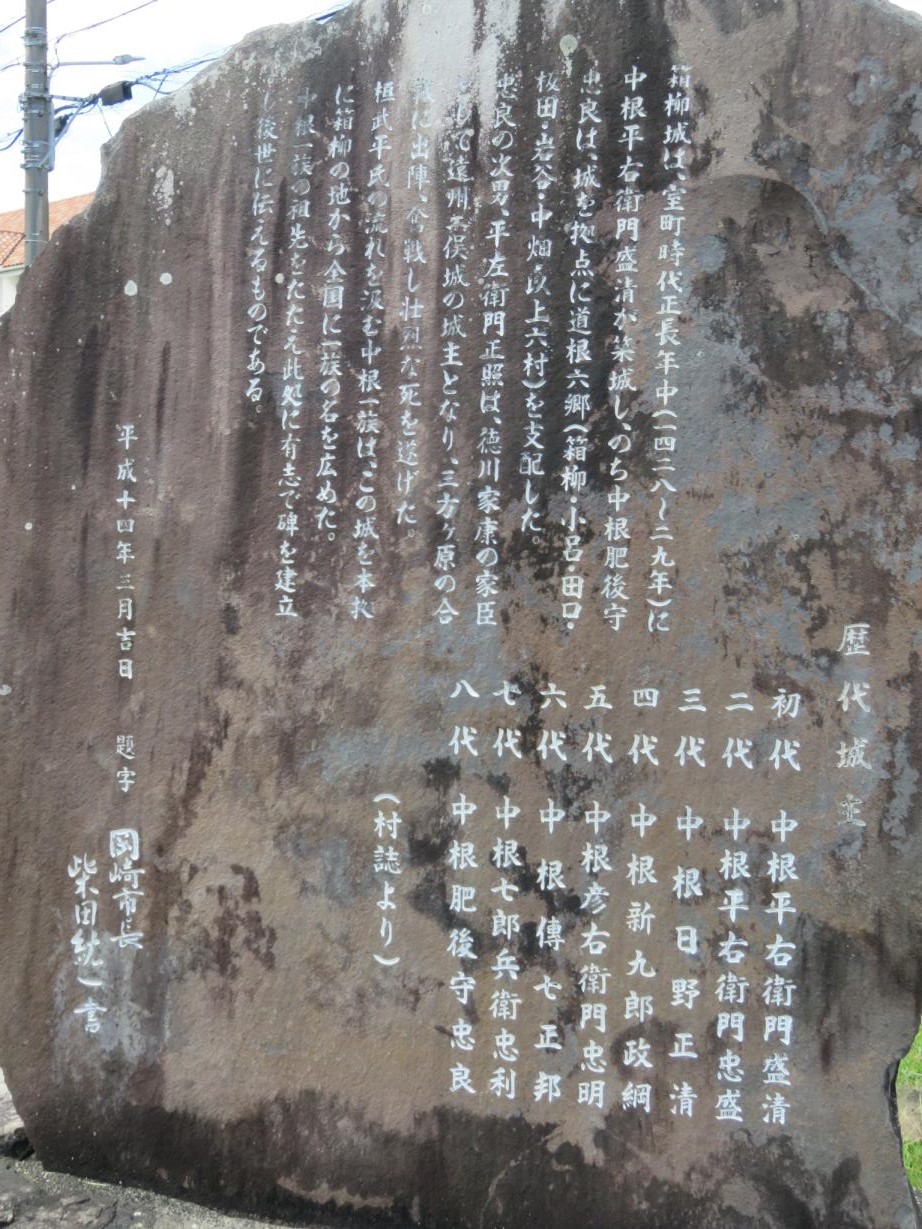 箱柳城は、室町時代正長年中(一四二八〜二九年)に
中根平右衛門盛清が築城し、のち中根肥後守
忠良は、城を拠点に道根六郷(箱柳・小呂・田口・
板田・岩谷・中畑・以上六村)を支配した。
忠良の次男、平左衛門正照は、徳川家康の家臣
として遠州二俣城の城主となり、三方ヶ原の合
戦に出陣、奮戦し壮烈な死を遂げた。
桓武平氏の流れを汲む中根一族は、この城を本拠
に箱柳の地から全国に一族の名を広めた。
中根一族の祖先をたたえ此処に有志で碑を建立
し後世に伝えるものである。
歴代城主
初代 中根平右衛門盛清
二代 中根平右衛門忠盛
三代 中根日野正清
四代 中根新九郎政綱
五代 中根彦右衛門忠明
六代 中根傳七正邦
七代 中根七郎兵衛忠利
八代 中根肥後守忠良
(村誌より)
平成十四年三月吉日 題字 岡崎市長
柴田紘一書